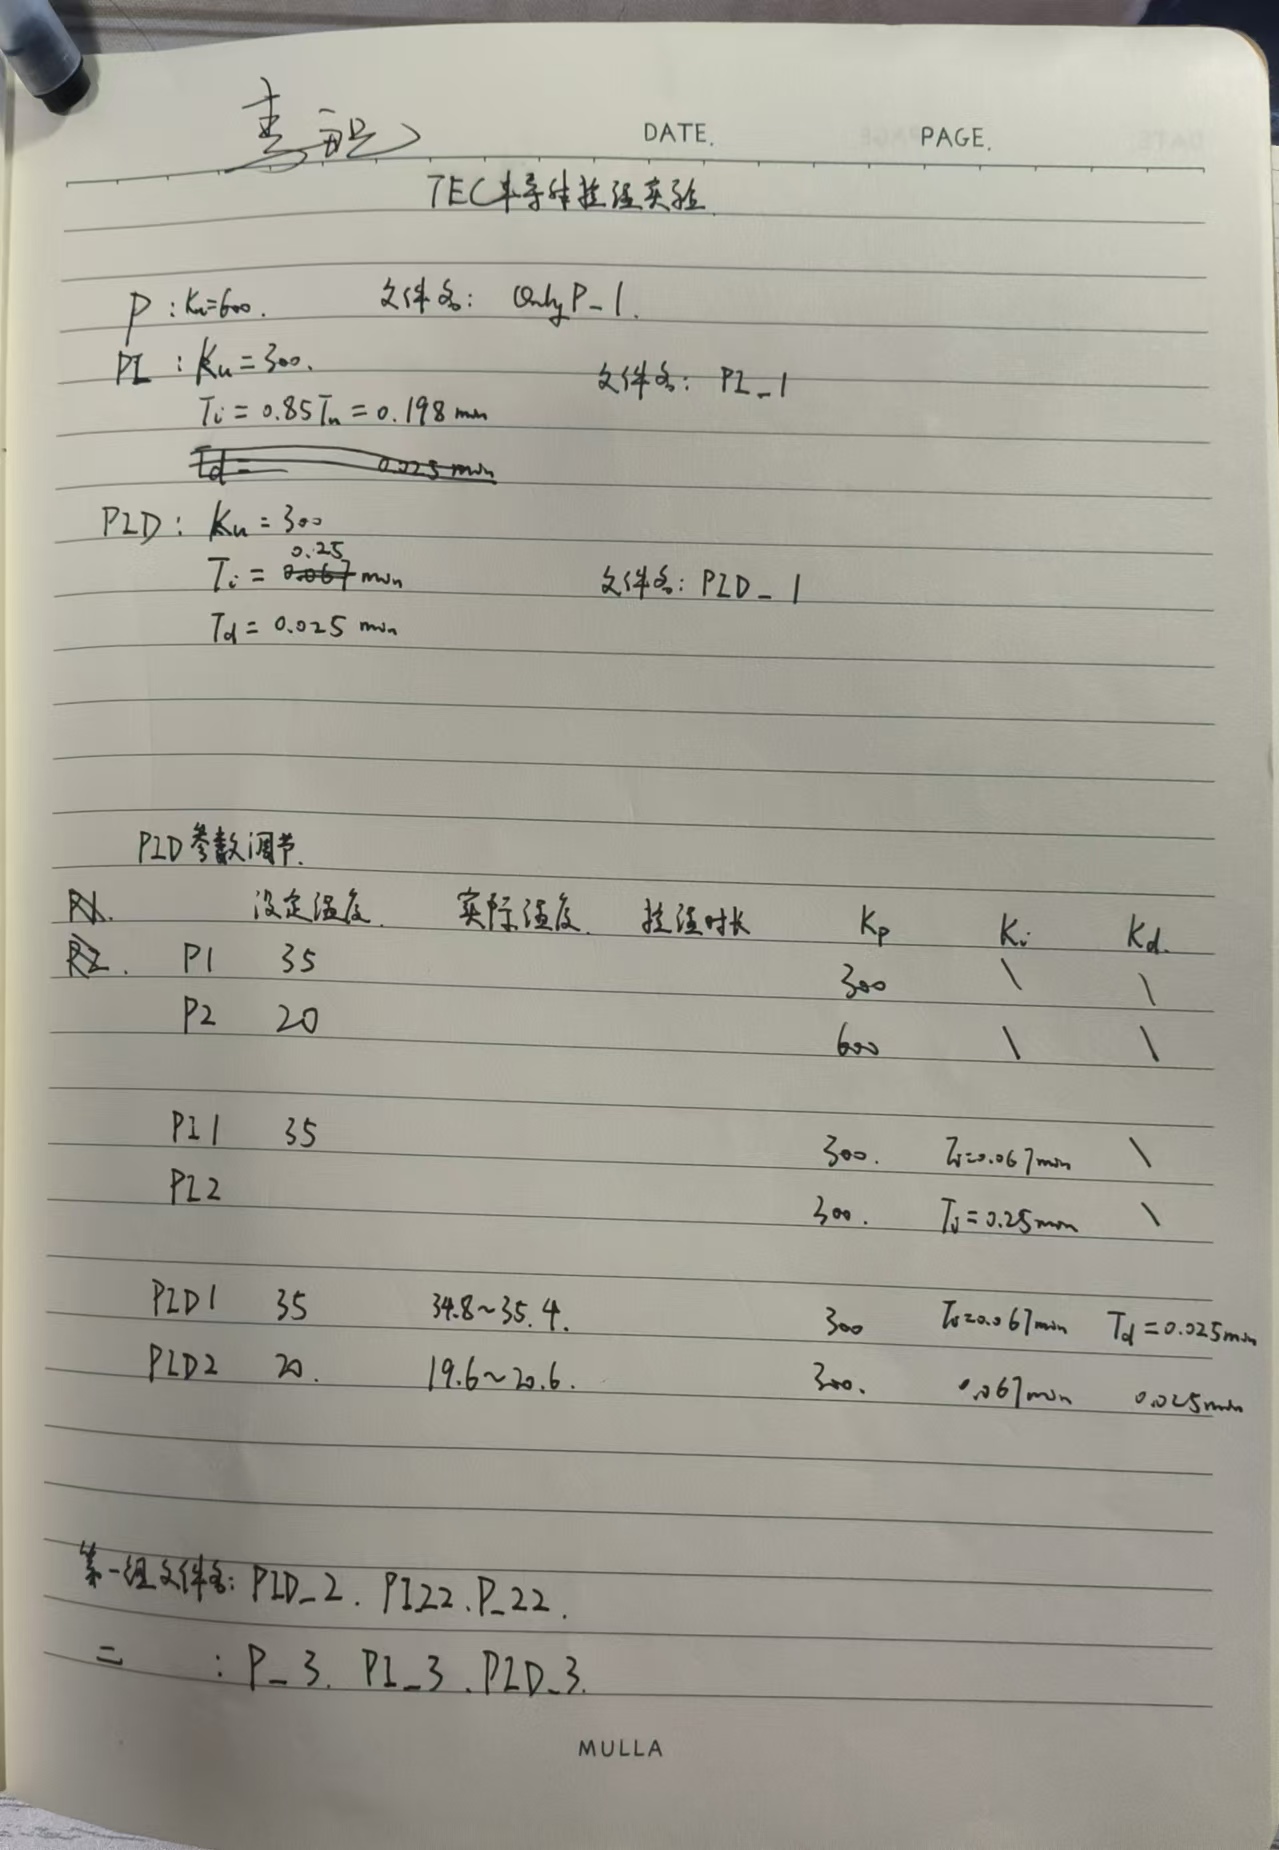 DATE. PAGE.
TEC半导体控温实验
P : Ku=600. 文件名: Only P_1.
PI : Ku=300. 文件名: PI_1
Ti = 0.85Tu = 0.198 min
Td = 0.025 min
PID : Ku = 300
0.25
Ti = 0.067 min 文件名: PID_1
Td = 0.025 min
PID参数调节.
设定温度. 实际温度. 控温时长 Kp Ki Kd.
P1 35 300 \ \
P2 20 600 \ \
PI1 35 300. Ti=0.067min \
PI2 300. Ti=0.25min \
PID1 35 34.8~35.4. 300 Ti=0.067min Td=0.025min
PID2 20. 19.6~20.6. 300. 0.067min 0.025min
第一组文件名: PID_2. PI22. P_22.
二 : P_3. PI_3. PID_3.
MULLA